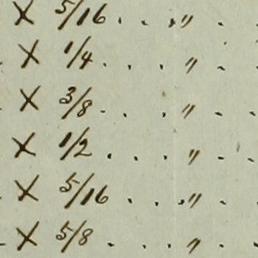 × 5/16 . . . "
× 1/4 . . . " .
. × 3/8 . . . " . .
. × 1/2 . . . " . .
. × 5/16 . . . " . .
. × 5/8 . . . " . .